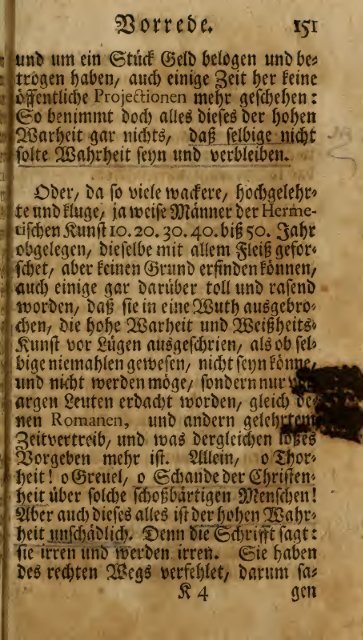 Vorrede. 151
und um ein Stück Geld belogen und be-
trogen haben, auch einige Zeit her keine
öffentliche Projectionen mehr geschehen:
So benimmt doch alles dieses der hohen
Warheit gar nichts, daß selbige nicht
solte Wahrheit seyn und verbleiben.
Oder, da so viele wackere, hochgelehr-
te und kluge, ja weise Männer der Herme-
tischen Kunst 10. 20. 30. 40. biß 50. Jahr
obgelegen, dieselbe mit allem Fleiß gefor-
schet, aber keinen Grund erfinden können,
auch einige gar darüber toll und rasend
worden, daß sie in eine Wuth ausgebro-
chen, die hohe Warheit und Weißheits-
Kunst vor Lügen ausgeschrien, als ob sel-
bige niemahlen gewesen, nicht seyn könne,
und nicht werden möge, sondern nur
argen Leuten erdacht worden, gleich de-
nen Romanen, und andern gelehrtem
Zeitvertreib, und was dergleichen loses
Vorgeben mehr ist. Allein, o Thor-
heit! o Greuel, o Schande der Christen-
heit über solche schoßbärtigen Menschen!
Aber auch dieses alles ist der hohen Wahr-
heit unschädlich. Denn die Schrifft sagt:
sie irren und werden irren. Sie haben
des rechten Wegs verfehlet, darum sa-
K 4 gen